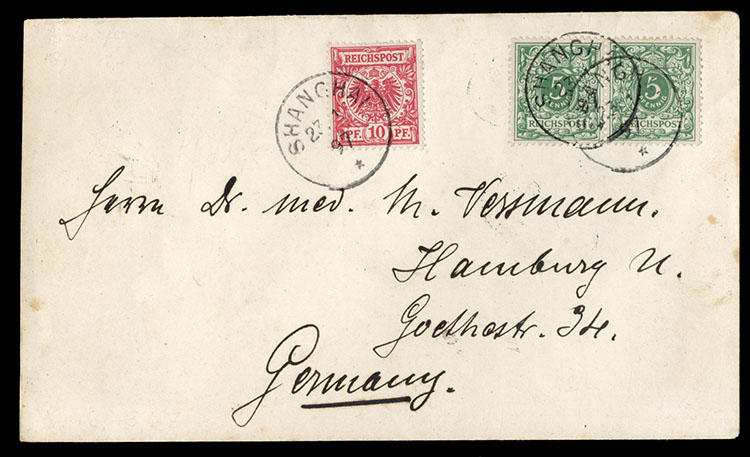 REICHSPOST
PF. 10 PF.
SHANGHAI
23
97
*
5
PFENNIG
REICHSPOST
5
PFENNIG
REICHSPOST
SHANGHAI
*
Herrn Dr. med. M. Versmann.
Hamburg U.
Goethestr. 34.
Germany.